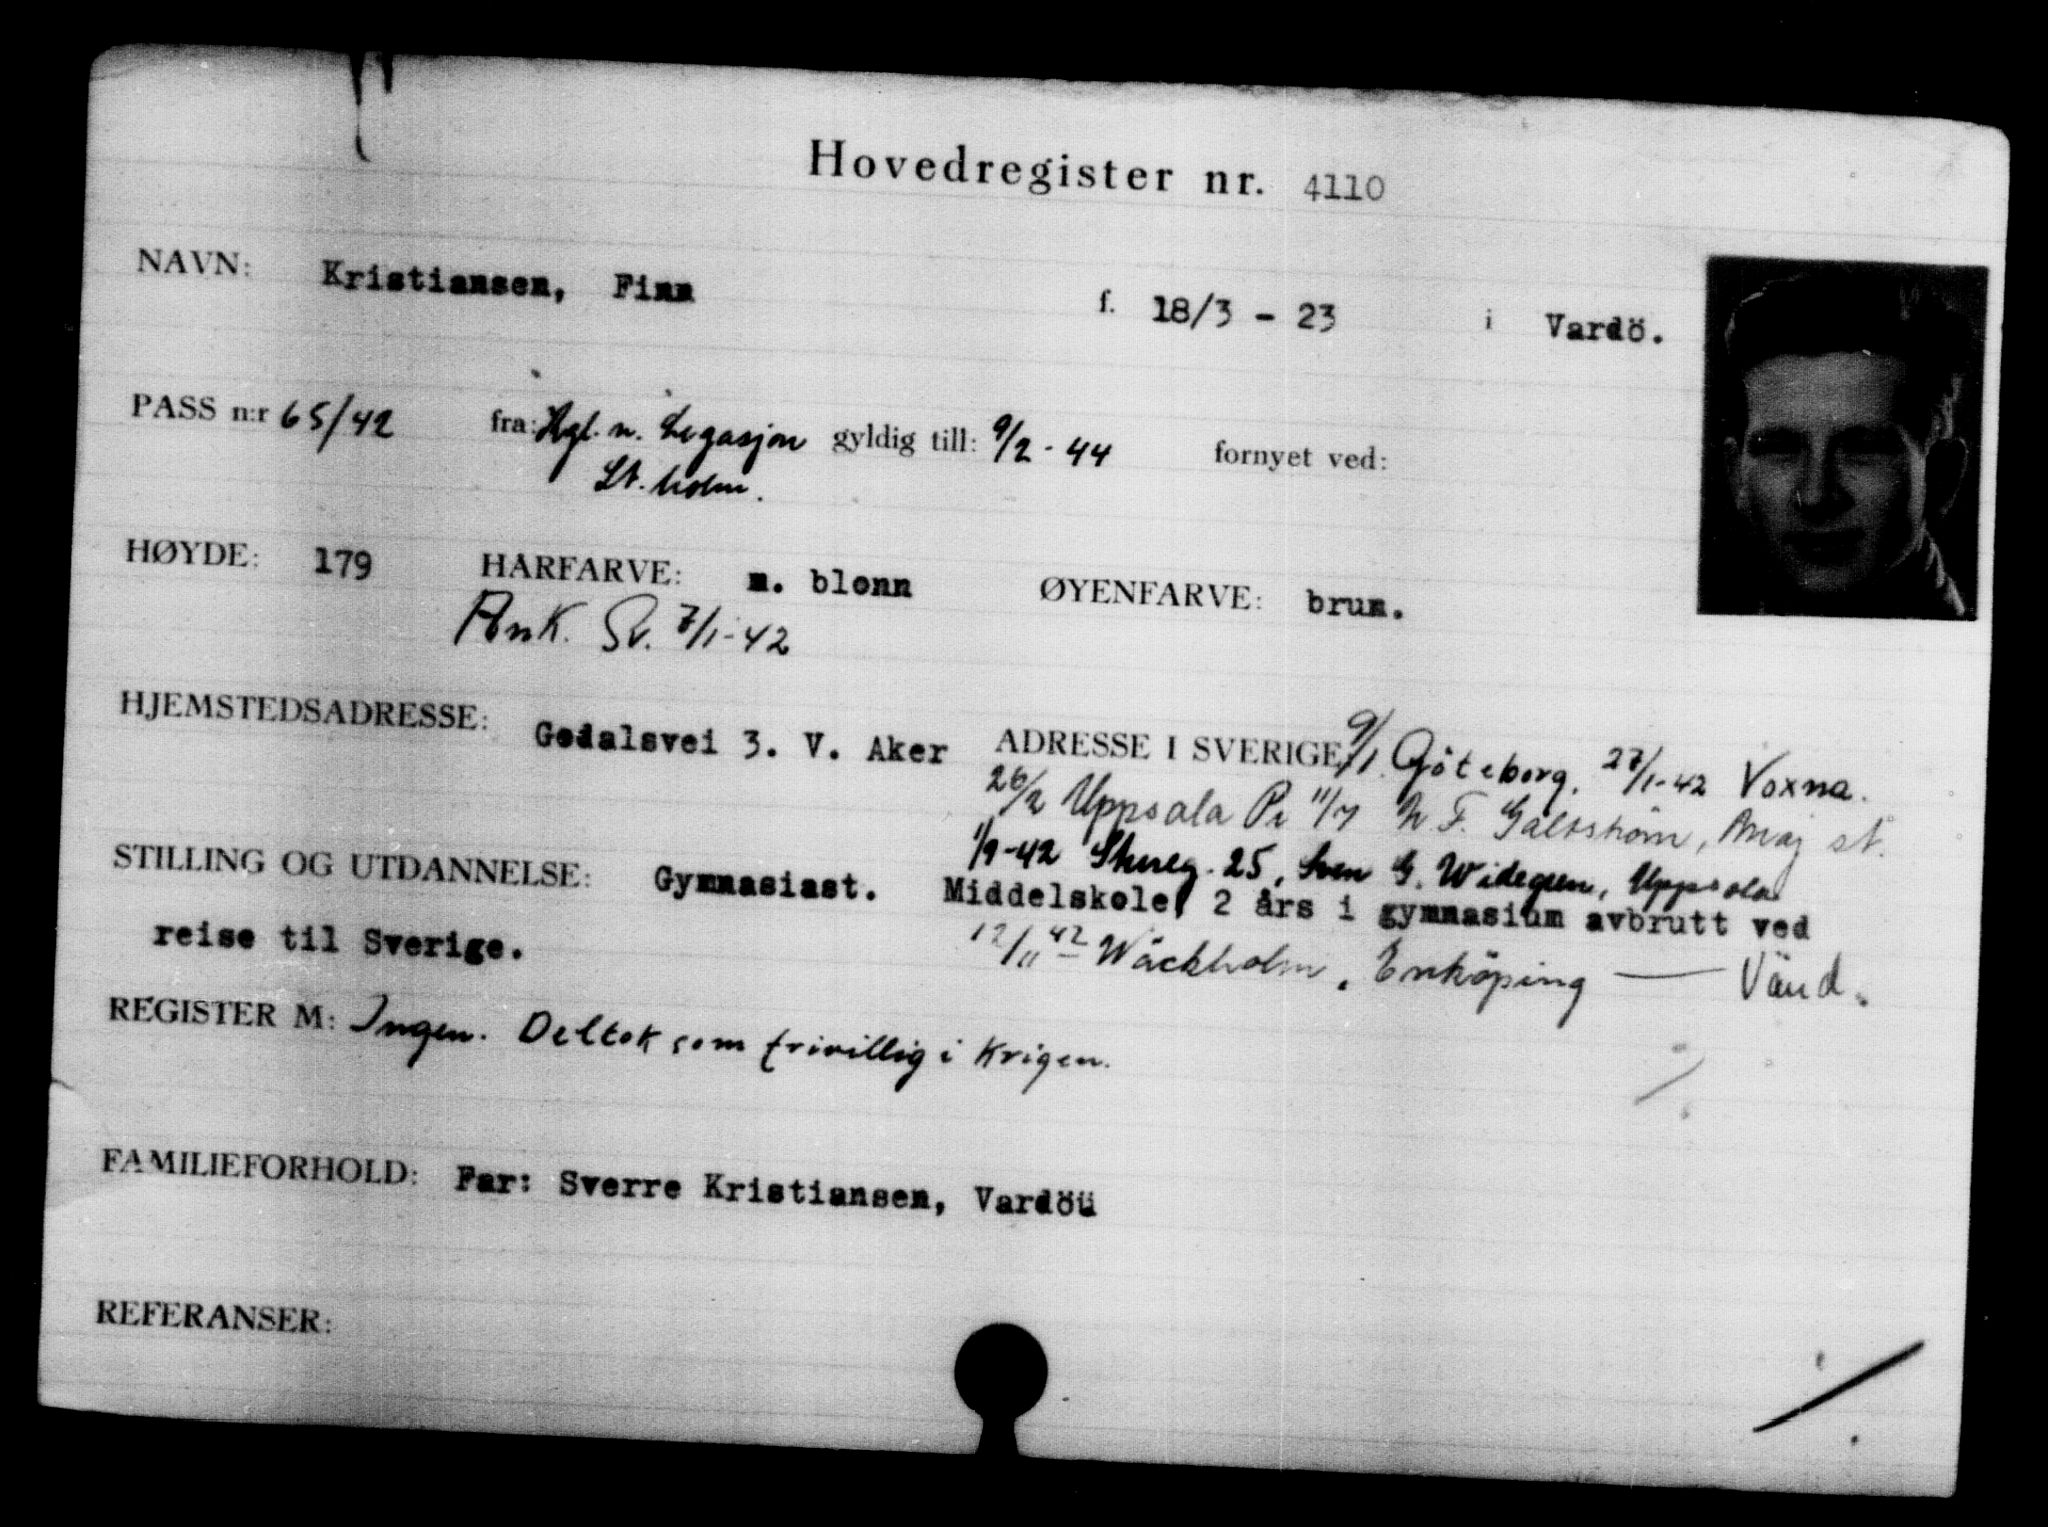 Hovedregister nr. 4110
NAVN: Kristiansen, Finn f. 18/3 - 23 i Vardö.
PASS n:r 65/42 fra: Kgl. n. Legasjon gyldig till: 9/2 - 44 fornyet ved:
St. holm.
HØYDE: 179 HÅRFARVE: m. blonn ØYENFARVE: brun.
Ank. Sv. 7/1-42
HJEMSTEDSADRESSE: Gedalsvei 3. V. Aker ADRESSE I SVERIGE 9/1. Göteborg. 27/1-42 Voxna.
26/2 Uppsala Pr 11/7 st.
1/9-42 25, Sven G. Widegren, Uppsala
STILLING OG UTDANNELSE: Gymnasiast. Middelskole, 2 års i gymnasium avbrutt ved
reise til Sverige.
12/11 42 Wäckholm, Enköping — Vänd.
REGISTER M: Ingen. Deltok som frivillig i Krigen.
FAMILIEFORHOLD: Far: Sverre Kristiansen, Vardöü
REFERANSER: